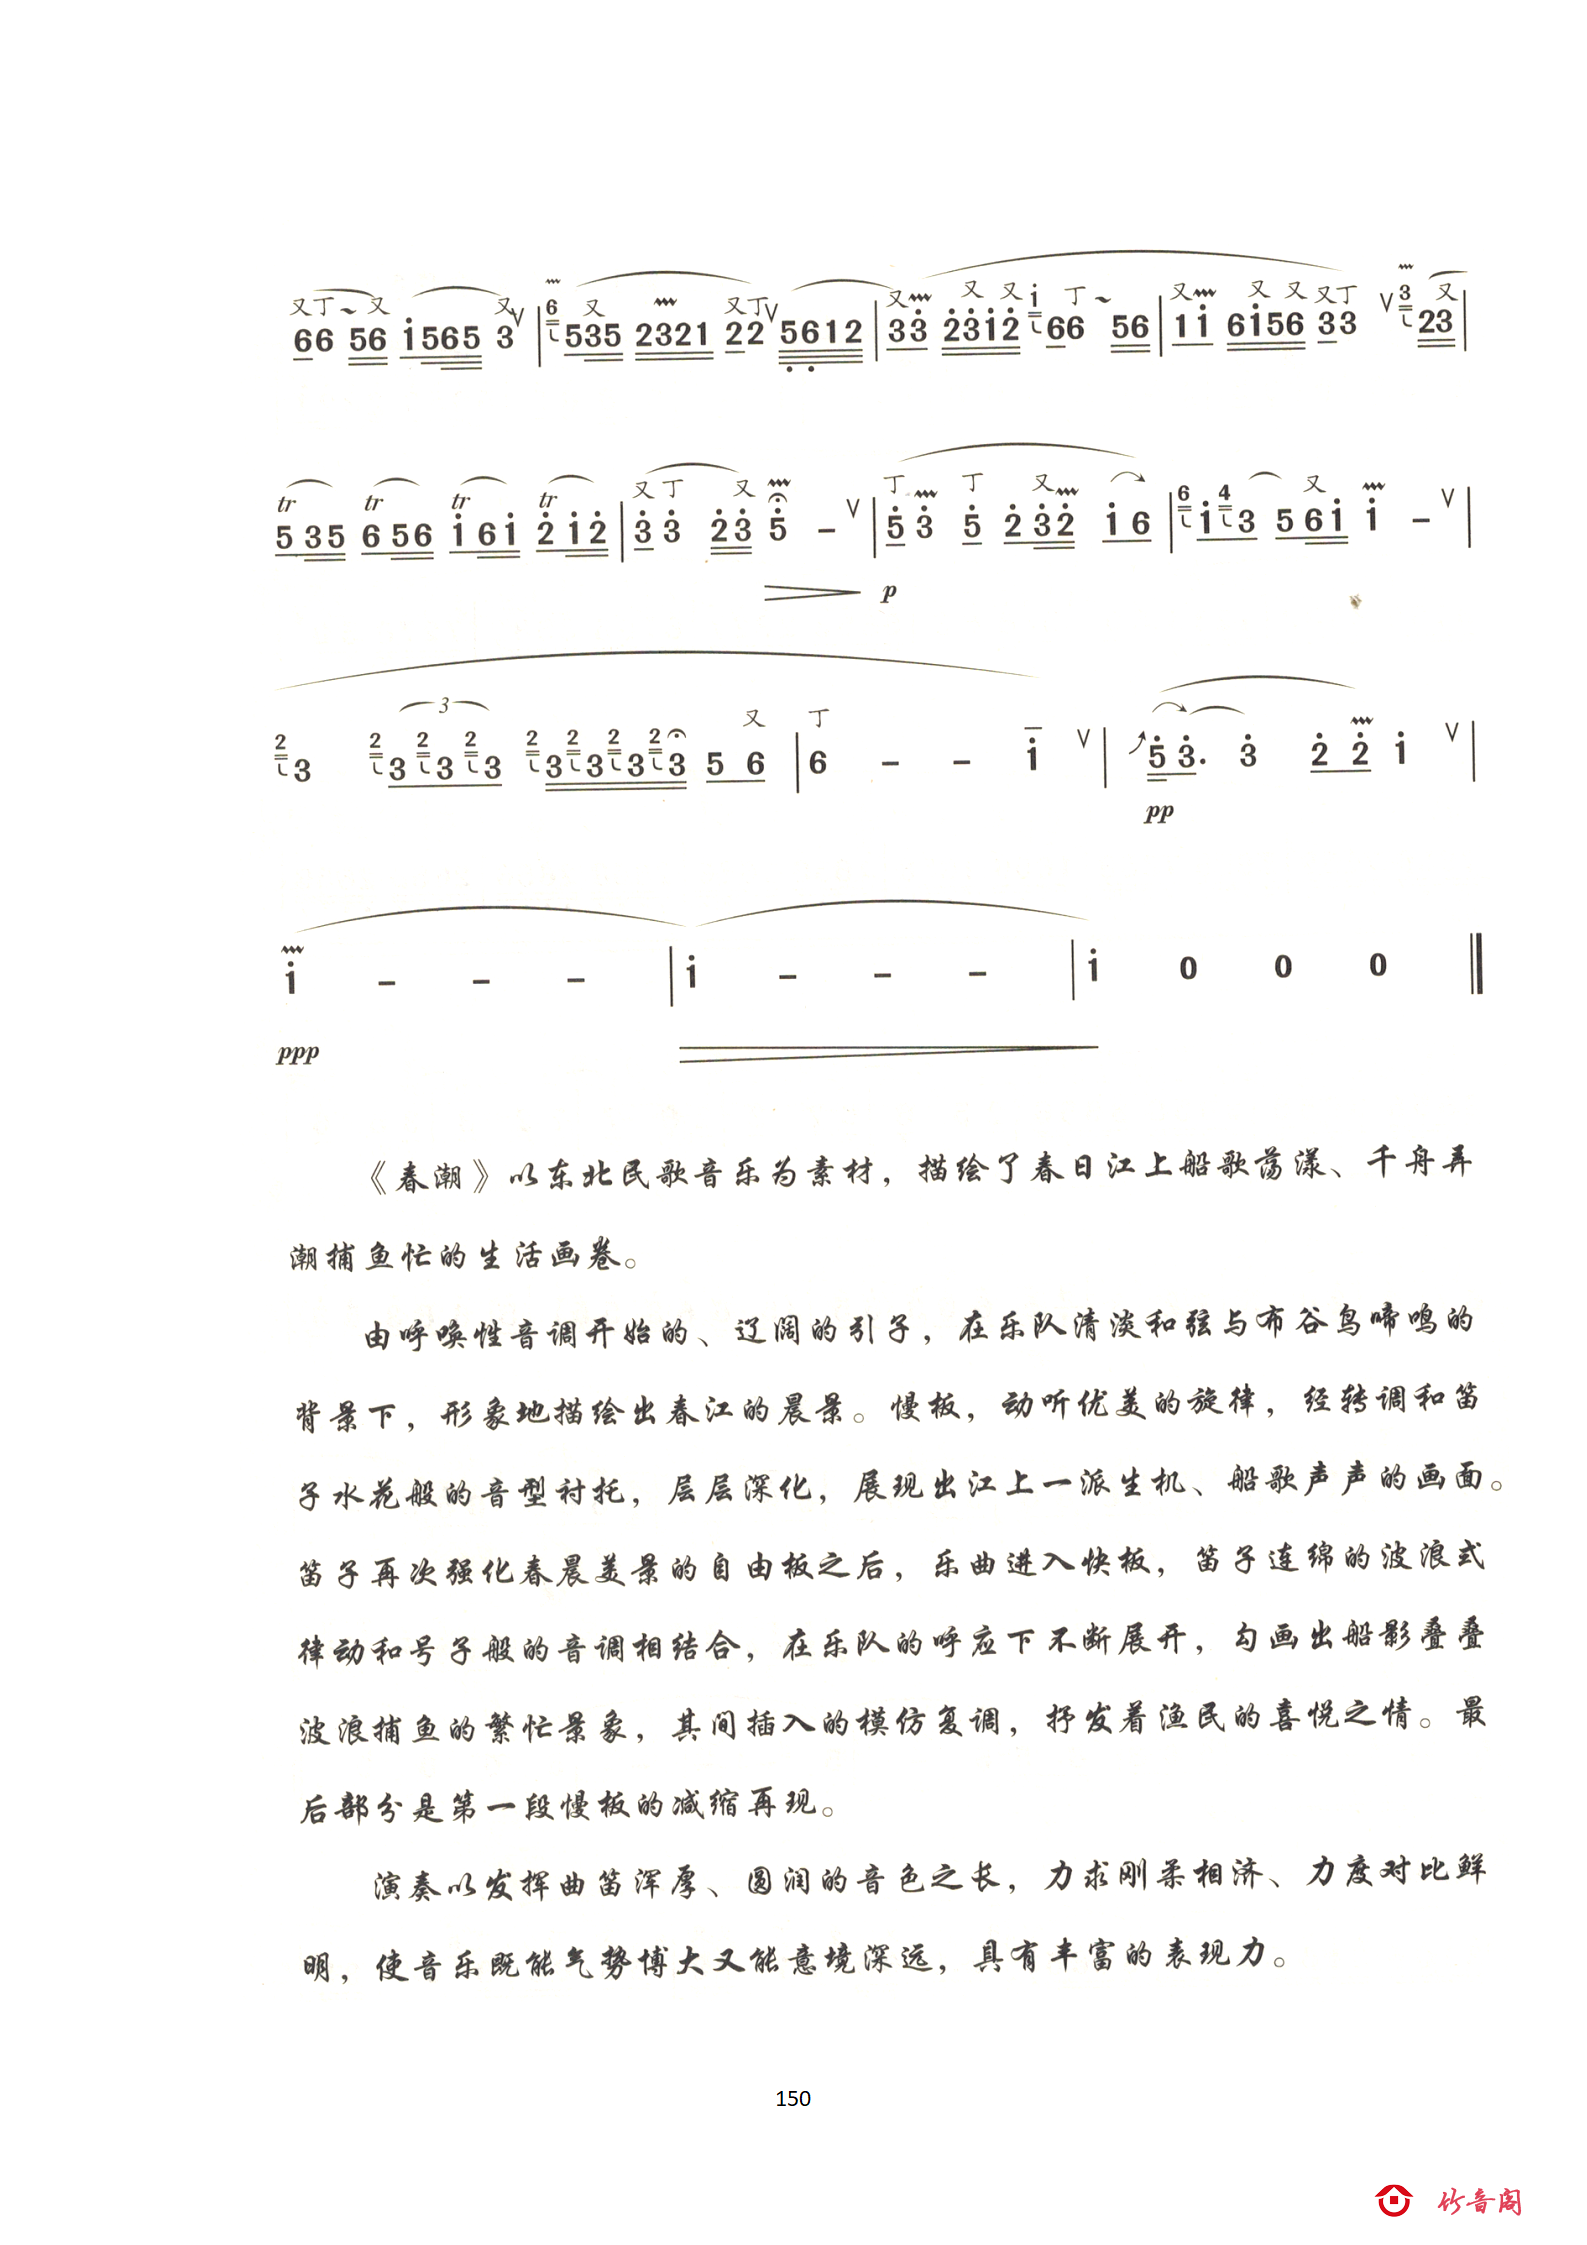 又丁~又 又 又 又丁 又 又 又 丁~ 又 又 又 又丁 又
66 56 i565 3 V | 6 535 2321 22 V 5612 | 33 2312 i 66 56 | 1i 6i56 33 V 3 23 |
tr tr tr tr 又丁 又 丁 丁 又 6 4 又
535 656 i6i 2i2 | 33 23 5 – V | 53 5 232 i6 | i3 56i i – V |
p
3
2 2 2 2 2 2 2 2 又 丁
3 333 3333 5 6 | 6 – – i V | 53. 3 2 2 i V |
pp
i – – – | i – – – | i 0 0 0
ppp
《春潮》以东北民歌音乐为素材，描绘了春日江上船歌荡漾、千舟弄
潮捕鱼忙的生活画卷。
由呼唤性音调开始的、辽阔的引子，在乐队清淡和弦与布谷鸟啼鸣的
背景下，形象地描绘出春江的晨景。慢板，动听优美的旋律，经转调和笛
子水花般的音型衬托，层层深化，展现出江上一派生机、船歌声声的画面。
笛子再次强化春晨美景的自由板之后，乐曲进入快板，笛子连绵的波浪式
律动和号子般的音调相结合，在乐队的呼应下不断展开，勾画出船影叠叠
波浪捕鱼的繁忙景象，其间插入的模仿复调，抒发着渔民的喜悦之情。最
后部分是第一段慢板的减缩再现。
演奏以发挥曲笛浑厚、圆润的音色之长，力求刚柔相济、力度对比鲜
明，使音乐既能气势博大又能意境深远，具有丰富的表现力。
150
竹音阁